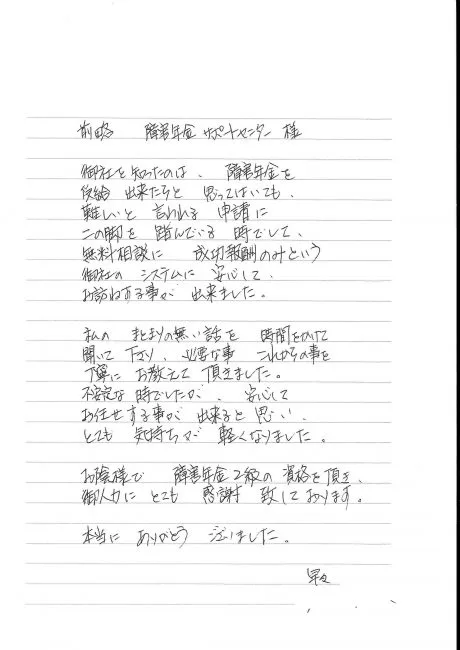 前略 障害年金サポートセンター 様
御社を知ったのは、障害年金を
供給 出来たらと 思ってはいても、
難しいと 言われる 申請に
二の脚を 踏んでいる 時でして、
無料相談に 成功報酬のみという
御社の システムに 安心して、
お訪ねする事が 出来ました。
私の まとまりの無い話を 時間をかけて
聞いて 下さり、必要な事 これからの事を
丁寧に お教えて 頂きました。
不安定な 時でしたが、安心して
お任せする事が 出来ると 思い、
とても 気持ちが 軽くなりました。
お陰様で 障害年金2級の 資格を頂き、
御人力に とても 感謝 致しております。
本当に ありがとう ございました。
早々